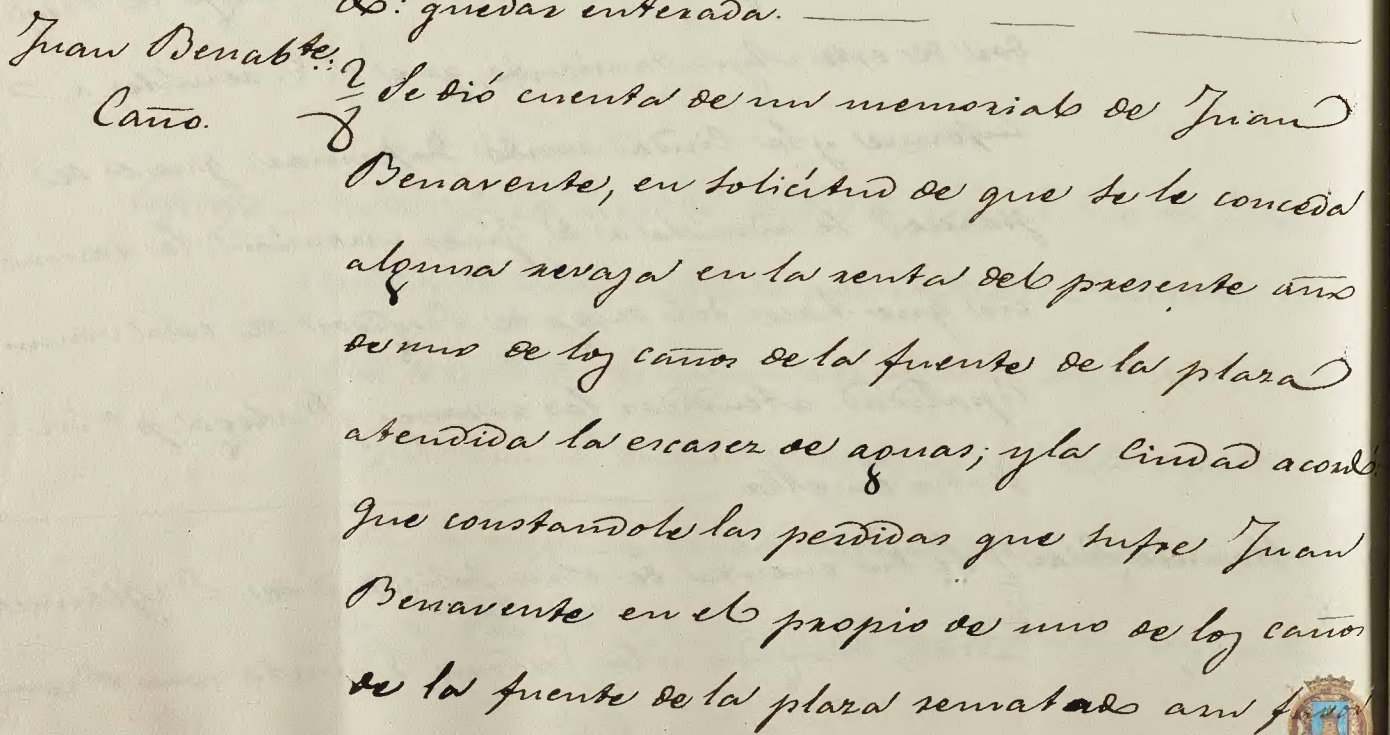 quedar enterada.
Juan Benab.te:
Caño.
Se dió cuenta de un memorial de Juan
Benavente, en solicitud de que se le conceda
alguna revaja en la renta del presente año
de uno de los caños de la fuente de la plaza
atendida la escasez de aguas; y la Ciudad acordó:
que constandole las perdidas que sufre Juan
Benavente en el propio de uno de los caños
de la fuente de la plaza rematado a su favor